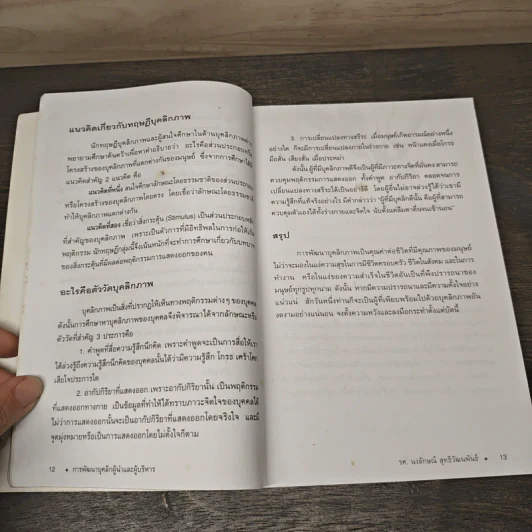 แนวคิดเกี่ยวกับทฤษฎีบุคลิกภาพ
นักทฤษฎีบุคลิกภาพและผู้สนใจศึกษาในด้านบุคลิกภาพต่าง
พยายามศึกษาค้นคว้าเพื่อหาคำอธิบายว่า อะไรคือส่วนประกอบหรือ
โครงสร้างของบุคลิกภาพที่แตกต่างกันของมนุษย์ ซึ่งจากการศึกษาได้
แนวคิดสำคัญ 2 แนวคิด คือ
แนวคิดที่หนึ่ง สนใจศึกษาลักษณะโดยธรรมชาติของส่วนประกอบ
หรือโครงสร้างของบุคลิกภาพโดยตรง โดยเชื่อว่าลักษณะโดยธรรมชาติ
ทำให้บุคลิกภาพแตกต่างกัน
แนวคิดที่สอง เชื่อว่าสิ่งกระตุ้น (Stimulus) เป็นส่วนประกอบหลัก
ที่สำคัญของบุคลิกภาพ เพราะเป็นตัวการที่มีอิทธิพลในการก่อให้เกิด
พฤติกรรม นักทฤษฎีกลุ่มนี้จึงเน้นหนักที่จะทำการศึกษาเกี่ยวกับบทบาท
ของสิ่งกระตุ้นที่มีผลต่อพฤติกรรมการแสดงออกของคน
อะไรคือตัววัดบุคลิกภาพ
บุคลิกภาพเป็นสิ่งที่ปรากฏให้เห็นทางพฤติกรรมต่างๆ ของบุคคล
ดังนั้นการศึกษาหาบุคลิกภาพของบุคคลจึงพิจารณาได้จากลักษณะหรือ
ตัววัดที่สำคัญ 3 ประการคือ
1. คำพูดที่สื่อความรู้สึกนึกคิด เพราะคำพูดจะเป็นการสื่อให้เรา
ได้ล่วงรู้ถึงความรู้สึกนึกคิดของบุคคลนั้นได้ว่ามีความรู้สึก โกรธ เศร้าโศก
เสียใจประการใด
2. อากัปกิริยาที่แสดงออก เพราะอากัปกิริยานั้น เป็นพฤติกรรม
ที่แสดงออกทางกาย เป็นข้อมูลที่ทำให้ได้ทราบภาวะจิตใจของบุคคลได้
ไม่ว่าการแสดงออกนั้นจะเป็นอากัปกิริยาที่แสดงออกโดยจริงใจ และมี
จุดมุ่งหมายหรือเป็นการแสดงออกโดยไม่ตั้งใจก็ตาม
12 • การพัฒนาบุคลิกผู้นำและผู้บริหาร
3. การเปลี่ยนแปลงทางสรีระ เมื่อมนุษย์เกิดอารมณ์อย่างหนึ่ง
อย่างใด ก็จะมีการเปลี่ยนแปลงภายในร่างกาย เช่น หน้าแดงเมื่อโกรธ
มือสั่น เสียงสั่น เมื่อประหม่า
ดังนั้น ผู้ที่มีบุคลิกภาพดีจึงเป็นผู้ที่มีภาวะทางจิตที่มั่นคงสามารถ
ควบคุมพฤติกรรมการแสดงออก ทั้งคำพูด อากัปกิริยา ตลอดจนการ
เปลี่ยนแปลงทางสรีระให้เป็นอย่างดี โดยผู้อื่นไม่อาจล่วงรู้ได้ว่าเขามี
ความรู้สึกที่แท้จริงอย่างไร มีคำกล่าวว่า "ผู้ที่มีบุคลิกดีนั้น คือผู้ที่สามารถ
ควบคุมตัวเองได้ทั้งร่างกายและจิตใจ นับตั้งแต่ลืมตาตื่นจนเข้านอน"
สรุป
การพัฒนาบุคลิกภาพเป็นคุณค่าต่อชีวิตที่มีคุณภาพของมนุษย์
ไม่ว่าจะมองในแง่ความสุขในการมีชีวิตครอบครัว ชีวิตในสังคม และในการ
ทำงาน หรือในแง่ของความสำเร็จในชีวิตอันเป็นที่พึงปรารถนาของ
มนุษย์ทุกรูปทุกนาม ดังนั้น หากมีความปรารถนาและมีความตั้งใจอย่าง
แน่วแน่ สักวันหนึ่งท่านก็จะเป็นผู้ที่เพียบพร้อมไปด้วยบุคลิกภาพอัน
งดงามอย่างแน่นอน จงตั้งความหวังและลงมือกระทำตั้งแต่บัดนี้
รศ. นงลักษณ์ สุทธิวัฒนพันธ์ • 13